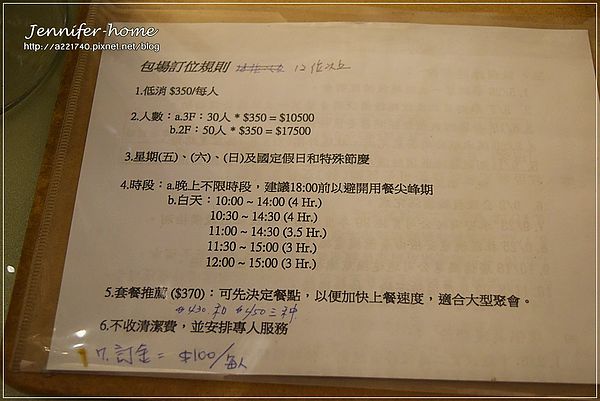 Jennifer-home
http://a221740.pixnet.net/blog
包場訂位規則 12位以上
1.低消 $350/每人
2.人數：a.3F：30人 * $350 = $10500
b.2F：50人 * $350 = $17500
3.星期(五)、(六)、(日)及國定假日和特殊節慶
4.時段：a.晚上不限時段，建議18:00前以避開用餐尖峰期
b.白天：10:00 ~ 14:00 (4 Hr.)
10:30 ~ 14:30 (4 Hr.)
11:00 ~ 14:30 (3.5 Hr.)
11:30 ~ 15:00 (3 Hr.)
12:00 ~ 15:00 (3 Hr.)
5.套餐推薦 ($370)：可先決定餐點，以便加快上餐速度，適合大型聚會。
$430 和 $450三种
6.不收清潔費，並安排專人服務
7.訂金 = $100/每人